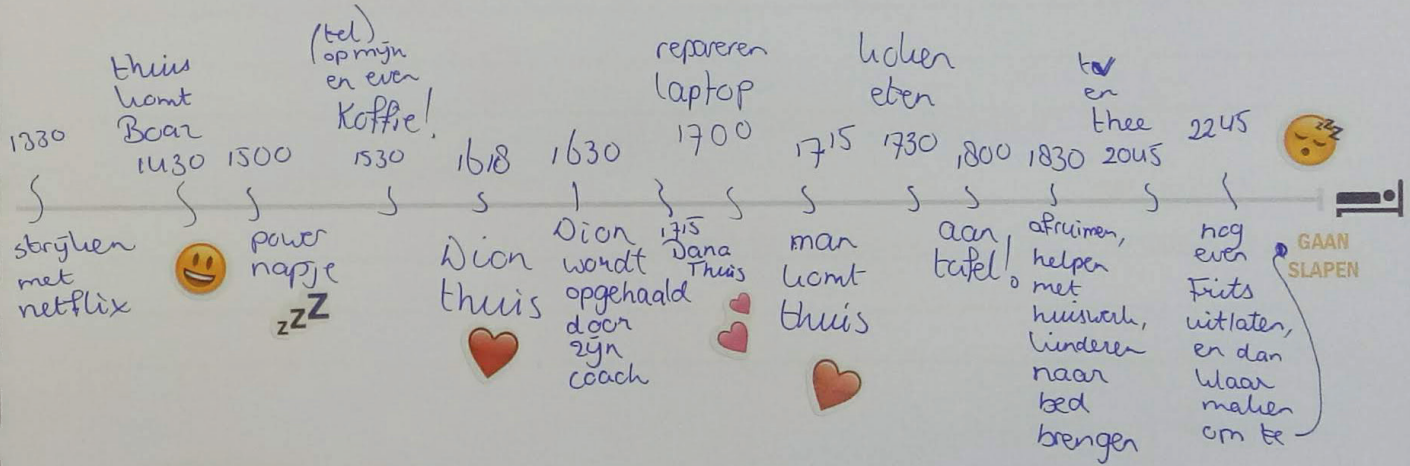 1330
strijken
met
netflix
thuis
komt
Boaz
1430
1500
power
napje
zzz
(tel)
op mijn
en even
koffie!
1530
1618
Dion
thuis
1630
Dion
wordt
opgehaald
door
zijn
coach
repareren
laptop
1700
1715
Dana
Thuis
1715
man
komt
thuis
koken
eten
1730
1800
aan
tafel!
1830
afruimen,
helpen
met
huiswerk,
kinderen
naar
bed
brengen
tv
en
thee
2045
2245
nog
even
Frits
uitlaten,
en dan
klaar
maken
om te
zzz
GAAN
SLAPEN